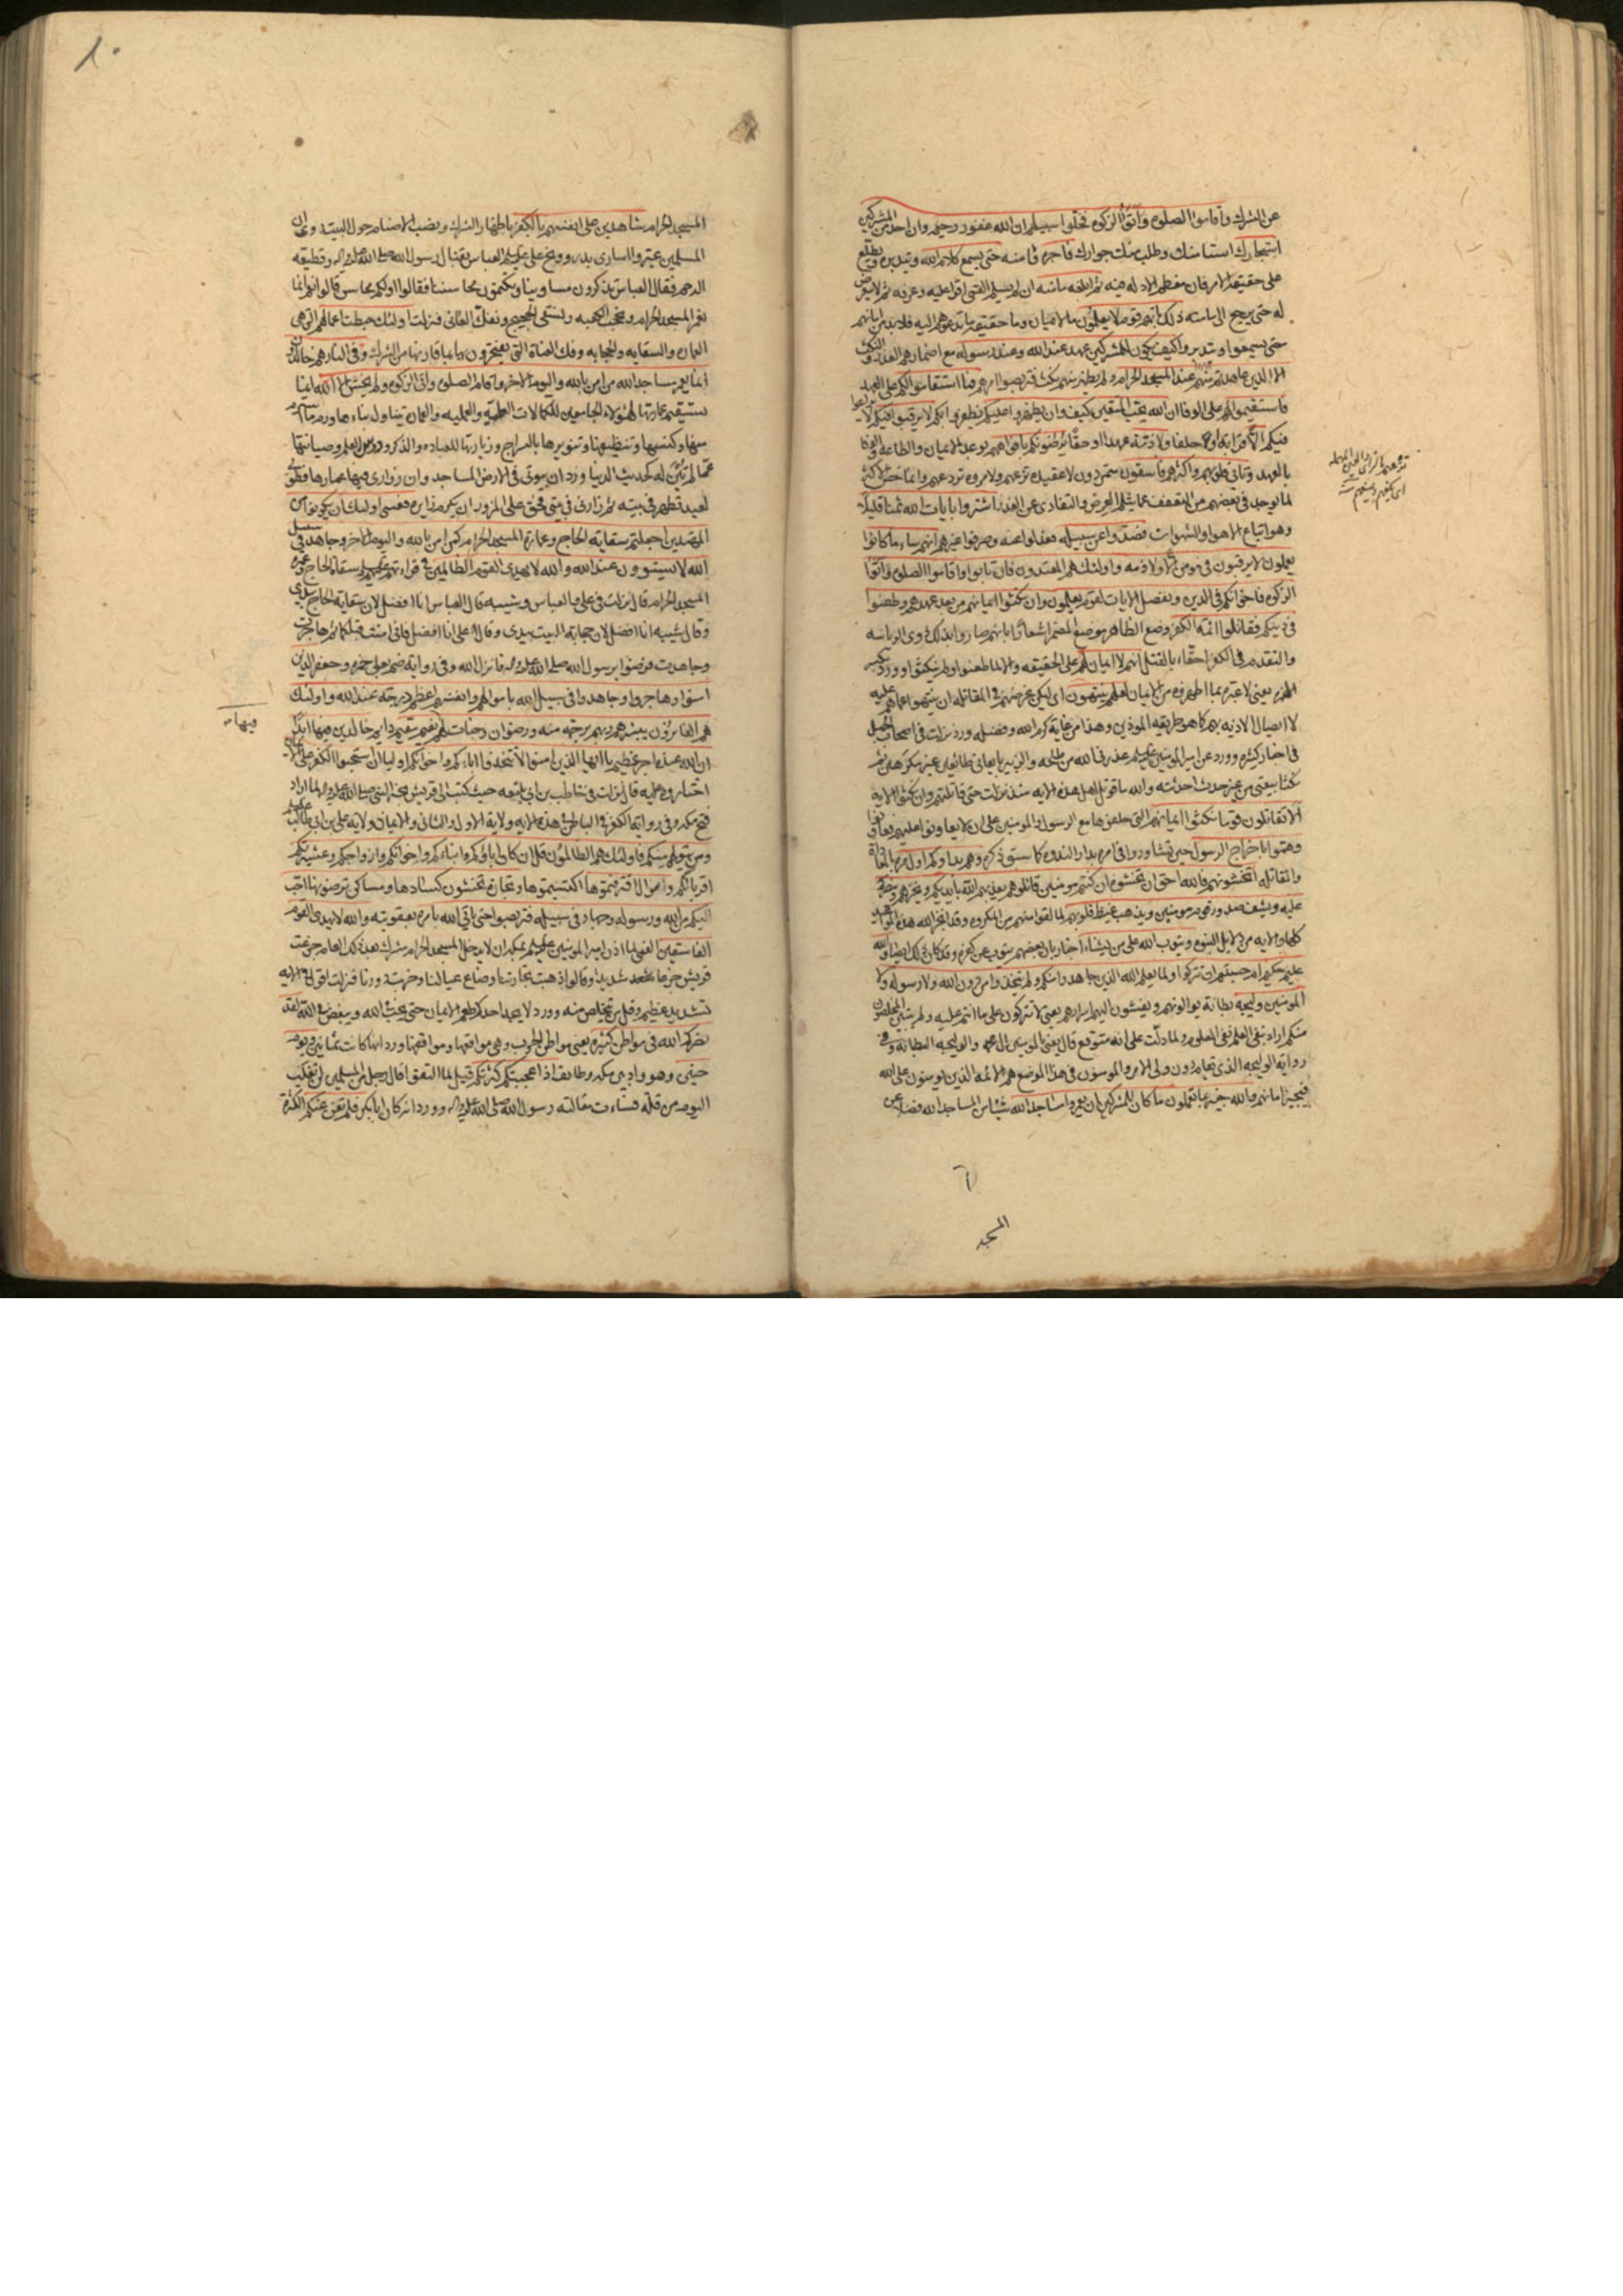 عن الشرك وأقاموا الصلوة وآتوا الزكوة فخلوا سبيلهم ان الله غفور رحيم وان احد من المشركين
استجارك استأمنك وطلب منك جوارك فاجره فآمنه حتى يسمع كلام الله ويتدبره ويطلع
على حقيقة الامر فان معظم الادلة فيه ثم ابلغه مأمنه ان لم يسلم
له حتى يرجع الى مأمنه ذلك بأنهم قوم لا يعلمون ما الايمان وما حقيقة ما تدعوهم اليه فلا بد من امانهم
حتى يسمعوا ويتدبروا كيف يكون للمشركين عهد عند الله وعند رسوله مع اضمارهم الغدر والنكث
الا الذين عاهدتم عند المسجد الحرام ولم يظهر منهم نكث فتربصوا امرهم فما استقاموا لكم على العهد
فاستقيموا لهم على الوفا ان الله يحب المتقين كيف وان يظهروا عليكم يظفروا بكم لا يرقبوا فيكم لا يراعوا
فيكم الّا قرابة او حلفا ولا ذمّة عهدا او حقّا يرضونكم بافواههم بوعد الايمان والطاعة والوفا
بالعهد وتأبى قلوبهم واكثرهم فاسقون متمردون لا عقيدة تزعهم ولا مروة تردعهم وانما خص الاكثر
لما يوجد في بعضهم من التعفف عما يثلم العرض والتفادى عن الغدر اشتروا بآيات الله ثمنا قليلا
وهو اتباع الاهوا والشهوات فصدوا عن سبيله فعدلوا عنه وصرفوا غيرهم انهم ساء ما كانوا
يعملون لا يرقبون في مؤمن الّا ولا ذمة واولئك هم المعتدون فان تابوا واقاموا الصلوة وآتوا
الزكوة فاخوانكم في الدين ونفصل الايات لقوم يعلمون وان نكثوا ايمانهم من بعد عهدهم وطعنوا
في دينكم فقاتلوا ائمة الكفر وضع الظاهر موضع المضمر اشعارا بانهم صاروا بذلك ذوى الرياسة
والتقدم في الكفر احقّاء بالقتل انهم لا ايمان لهم على الحقيقة والا لما طعنوا ولم ينكثوا وورد بكسر
الهمزة يعنى لا عبرة بما اظهروه من الايمان لعلهم ينتهون اى ليكن غرضكم في المقاتلة ان ينتهوا عما هم عليه
لا ايصال الاذية بهم كما هو طريقة الموذين وهذا من غاية كرم الله وفضله وورد نزلت في اصحاب الجمل
في اخبار كثيرة وورد عن امير المؤمنين عليه السلم عذرنى الله من طلحة والزبير بايعانى طائعين غير مكرهين ثم
نكثا بيعتى من غير حدث احدثته والله ما قوتل اهل هذه الاية منذ نزلت حتى قاتلتهم وان نكثوا الاية
ألا تقاتلون قوما نكثوا ايمانهم التي حلفوها مع الرسول والمؤمنين على ان لا يعاونوا عليهم فعاونوا
وهمّوا باخراج الرسول حين تشاوروا في امره بدار الندوة كما سبق ذكره وهم بدأوكم اول مرة بالمعاداة
والمقاتلة أتخشونهم فالله احق ان تخشوه ان كنتم مؤمنين قاتلوهم يعذبهم الله بايديكم ويخزهم وينصركم
عليهم ويشف صدور قوم مؤمنين ويذهب غيظ قلوبهم لما لقوا منهم من المكروه وقد انجز الله هذه المواعيد
كلها والاية من دلايل النبوة ويتوب الله على من يشاء اخبار بان بعضهم يتوب عن كفره وقد كان ذلك ايضا والله
عليم حكيم ام حسبتم ان تتركوا ولما يعلم الله الذين جاهدوا منكم ولم يتخذوا من دون الله ولا رسوله ولا
المؤمنين وليجة بطانة يوالونهم ويفشون اليهم اسرارهم يعنى لا تتركون على ما انتم عليه ولم يتبين المخلصون
منكم اراد بنفى العلم نفى المعلوم ولما دلت على انه متوقع قال يعنى بالمؤمنين آل محمد والوليجة البطانة وفي
رواية الوليجة الذي يقام دون ولى الامر والمؤمنون في هذا الموضع هم الائمة الذين يؤمنون على الله
فيجيز امانهم والله خبير بما تعملون ما كان للمشركين ان يعمروا مساجد الله شيئا من المساجد فضلا عن
المسجد
المسجد الحرام شاهدين على انفسهم بالكفر باظهار الشرك ونصب الاصنام حول البيت وورد ان
المسلمين عيّروا اسارى بدر ووبّخ على عليه السلم العباس بقتال رسول الله صلى الله عليه وآله وقطيعة
الرحم فقال العباس تذكرون مساوينا وتكتمون محاسننا فقالوا أولكم محاسن قالوا نعم انا
نعمر المسجد الحرام ونحجب الكعبة ونسقى الحجيج ونفك العانى فنزلت اولئك حبطت اعمالهم التي هي
العمارة والسقاية والحجابة وفك العناة التي يفتخرون بها بما قارنها من الشرك وفي النار هم خالدون
انما يعمر مساجد الله من امن بالله واليوم الاخر واقام الصلوة واتى الزكوة ولم يخش الا الله انما
تستقيم عمارتها لهؤلاء الجامعين للكمالات العلمية والعملية والعمارة يتناول بناءها ورم ما استرم
منها وكنسها وتنظيفها وتنويرها بالسراج وزيارتها للعبادة والذكر ودرس العلم وصيانتها
عما لم تبن له كحديث الدنيا ورد ان بيوتى في الارض المساجد وان زوارى فيها عمارها فطوبى
لعبد تطهر في بيته ثم زارنى في بيتى فحق على المزور ان يكرم زايره فعسى اولئك ان يكونوا من
المهتدين اجعلتم سقاية الحاج وعمارة المسجد الحرام كمن امن بالله واليوم الاخر وجاهد في سبيل
الله لا يستوون عند الله والله لا يهدى القوم الظالمين في قرائتهم عليهم السلم سقاة الحاج وعمرة
المسجد الحرام قال نزلت في على والعباس وشيبة قال العباس انا افضل لان سقاية الحاج بيدى
وقال شيبة انا افضل لان حجابة البيت بيدى وقال على انا افضل فانى امنت قبلكما ثم هاجرت
وجاهدت فرضوا برسول الله صلى الله عليه وآله فانزل الله وفي رواية ضم على حمزة وجعفر الذين
امنوا وهاجروا وجاهدوا في سبيل الله باموالهم وانفسهم اعظم درجة عند الله واولئك
هم الفائزون يبشرهم ربهم برحمة منه ورضوان وجنات لهم نعيم مقيم دايم خالدين فيها ابدا
فيها
ان الله عنده اجر عظيم يا ايها الذين امنوا لا تتخذوا آباءكم واخوانكم اولياء ان استحبوا الكفر على الايمان
اختاروه عليه قال نزلت في حاطب بن ابى بلتعة حيث كتب الى قريش بخبر النبى صلى الله عليه وآله لما اراد
فتح مكة وفي رواية الكفر في الباطن في هذه الاية ولاية الاول والثانى والايمان ولاية على بن ابى طالب عليه السلم
ومن يتولهم منكم فاولئك هم الظالمون قل ان كان آباؤكم وابناءكم واخوانكم وازواجكم وعشيرتكم
اقرباؤكم واموال اقترفتموها اكتسبتموها وتجارة تخشون كسادها ومساكن ترضونها احب
اليكم من الله ورسوله وجهاد في سبيله فتربصوا حتى يأتى الله بامره بعقوبته والله لا يهدى القوم
الفاسقين القمى لما اذن امير المؤمنين عليه السلم بمكة ان لا يدخل المسجد الحرام مشرك بعد ذلك العام جزعت
قريش جزعا شديدا وقالوا ذهبت تجارتنا وضاع عيالنا وخربت دورنا فنزلت اقول في الاية
تشديد عظيم وقل من تخلص منه وورد لا يجد احدكم طعم الايمان حتى يحب في الله ويبغض في الله لقد
نصركم الله في مواطن كثيرة يعنى مواطن الحرب وهي مواقفها ورد انها كانت ثمانين ويوم
حنين وهو واد بين مكة وطايف اذ اعجبتكم كثرتكم قيل لما التقوا قال رجل من المسلمين لن نغلب
اليوم من قلة فساءت مقالته رسول الله صلى الله عليه وآله وورد انه كان ابابكر فلم تغن عنكم الكثرة